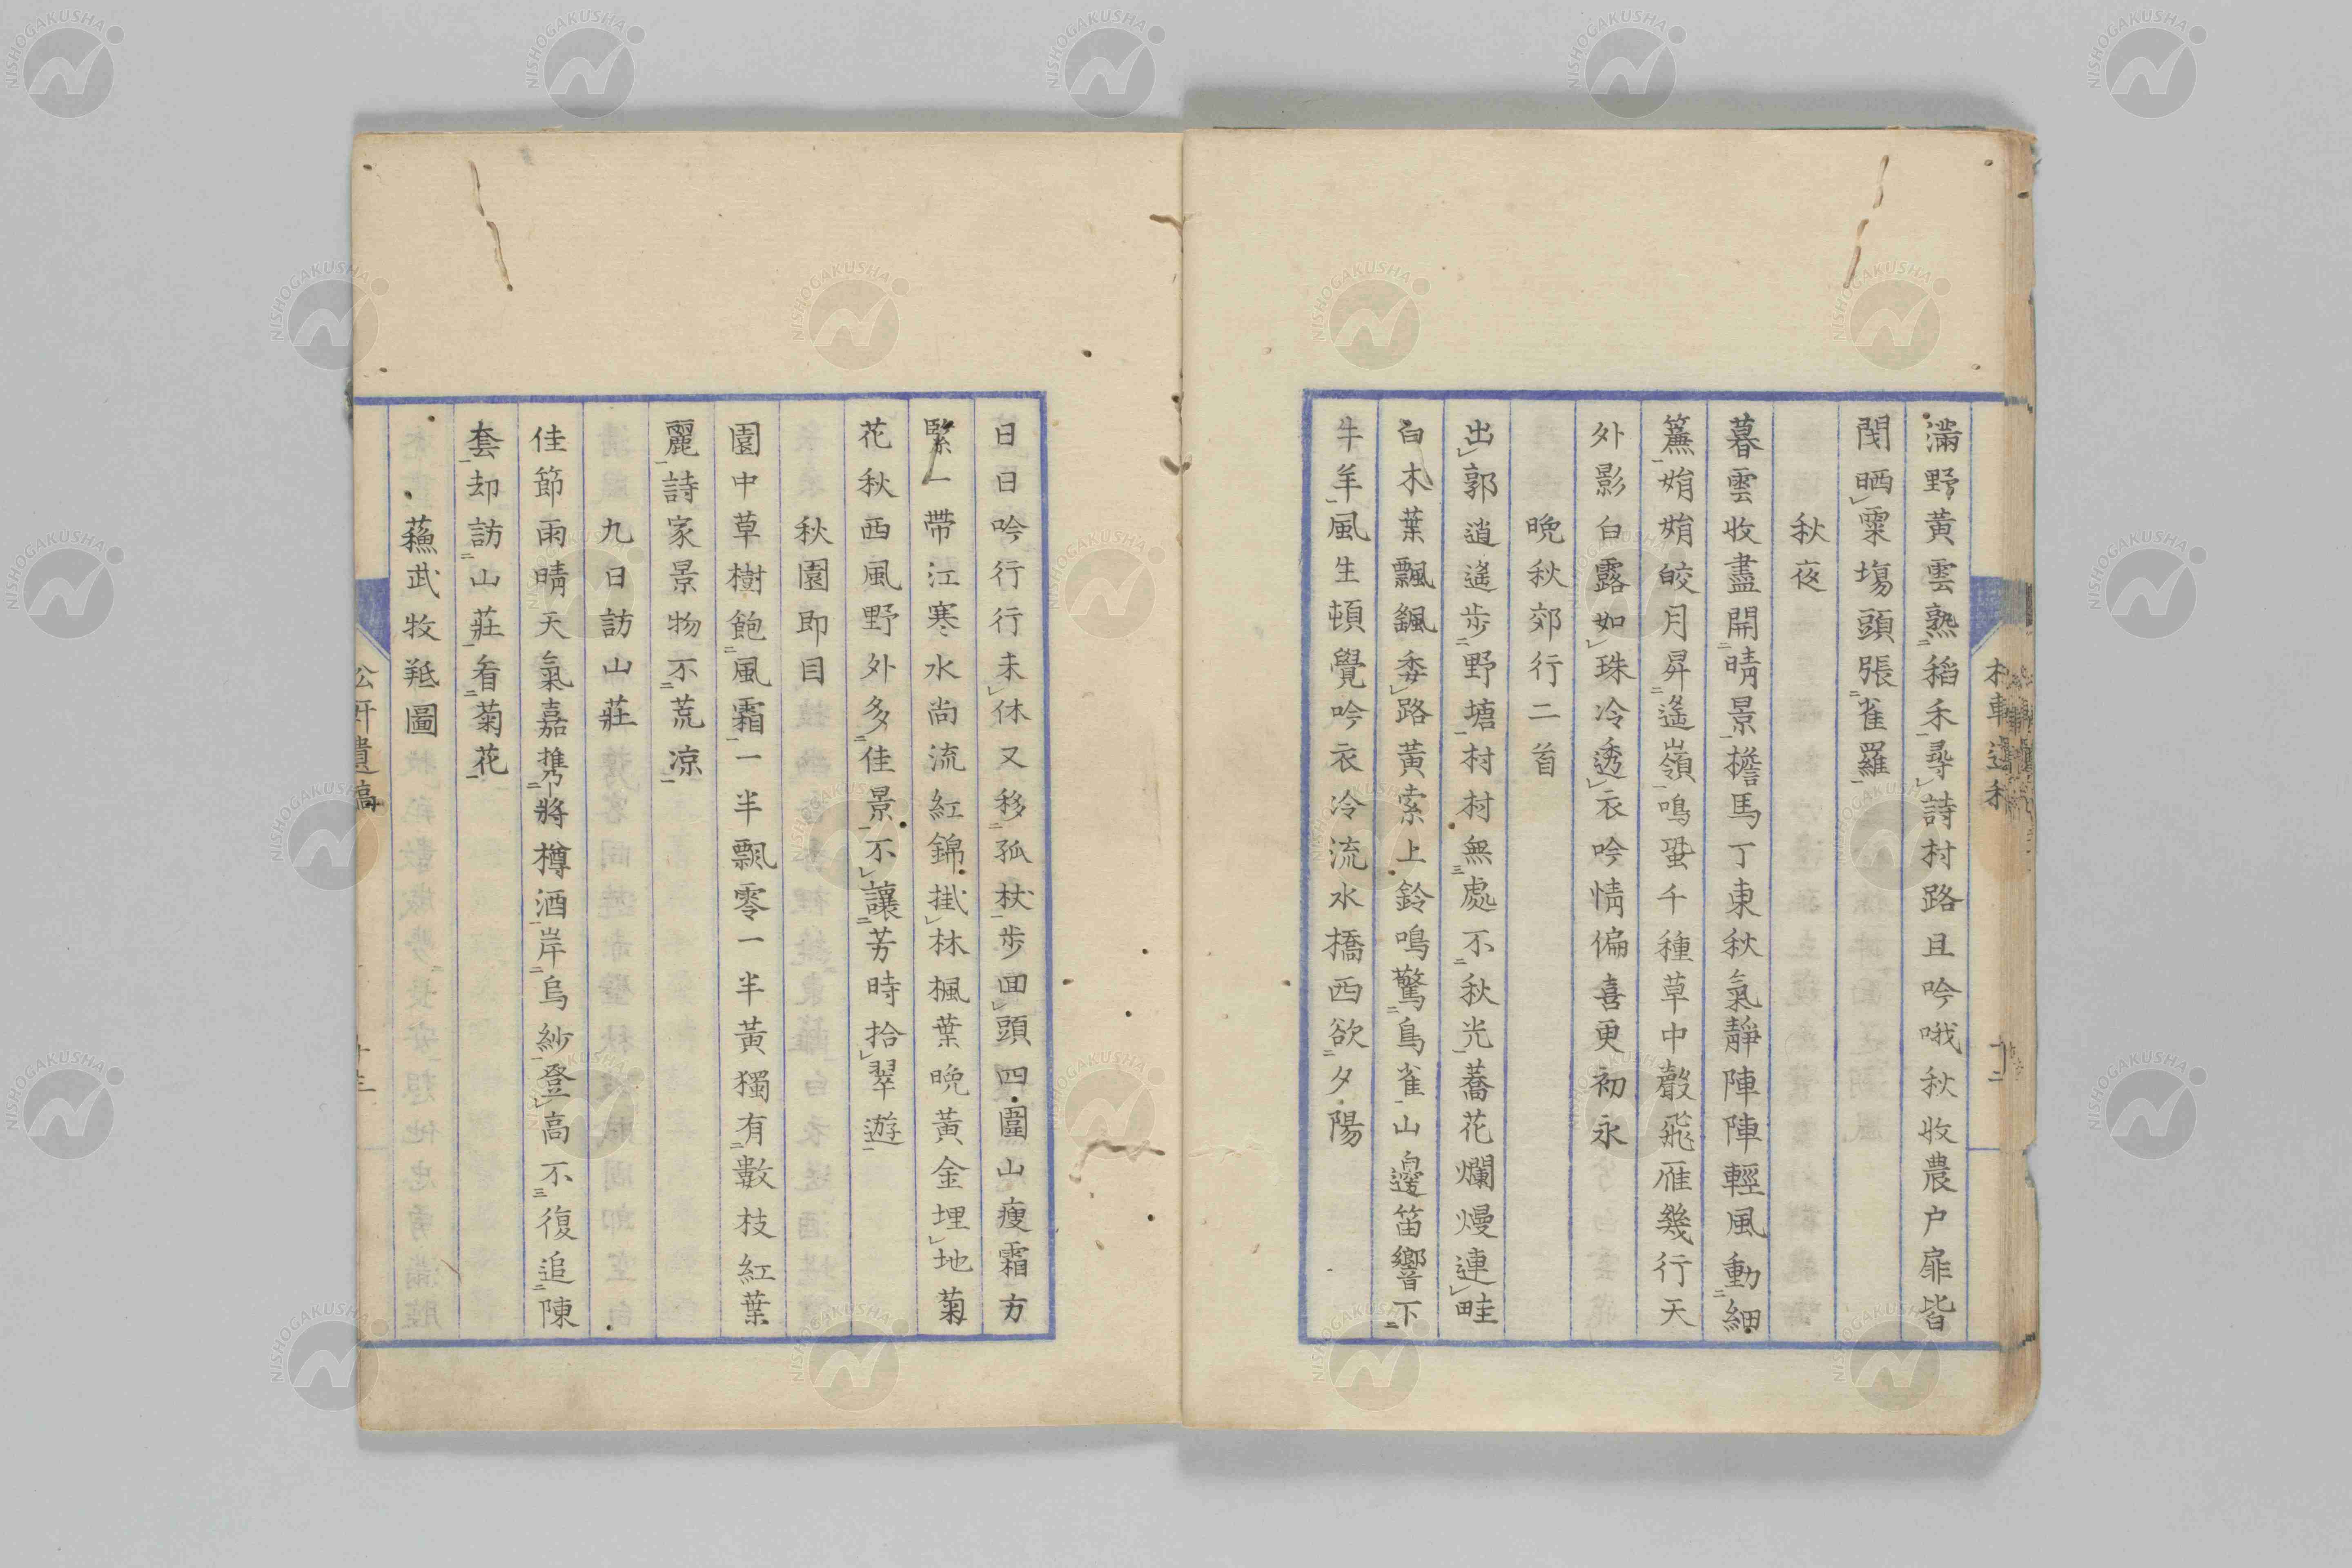 滿野黃雲熟稻禾尋詩村路且吟哦秋收農户扉皆
閉晒粟塲頭張雀羅
秋夜
暮雲收盡開晴景檐馬丁東秋氣靜陣陣輕風動細
簾娟娟皎月昇遙嶺鳴蛩千種草中聲飛雁幾行天
外影白露如珠冷透衣吟情偏喜更初永
晩秋郊行二首
出郭逍遙步野塘村村無處不秋光蕎花爛熳連畦
白木葉飄飄委路黃索上鈴鳴驚鳥雀山邊笛響下
牛羊風生頓覺吟衣冷流水橋西欲夕陽
日日吟行行未休又移孤杖步回頭四圍山瘦霜方
緊一帶江寒水尚流紅錦掛林楓葉晩黃金埋地菊
花秋西風野外多佳景不讓芳時拾翠遊
秋園即目
園中草樹飽風霜一半飄零一半黃獨有數枝紅葉
麗詩家景物不荒凉
九日訪山莊
佳節雨晴天氣嘉携將樽酒岸烏紗登高不復追陳
套却訪山莊看菊花
蘓武牧羝圖
公軒遺稿
十三
NISHOGAKUSHA